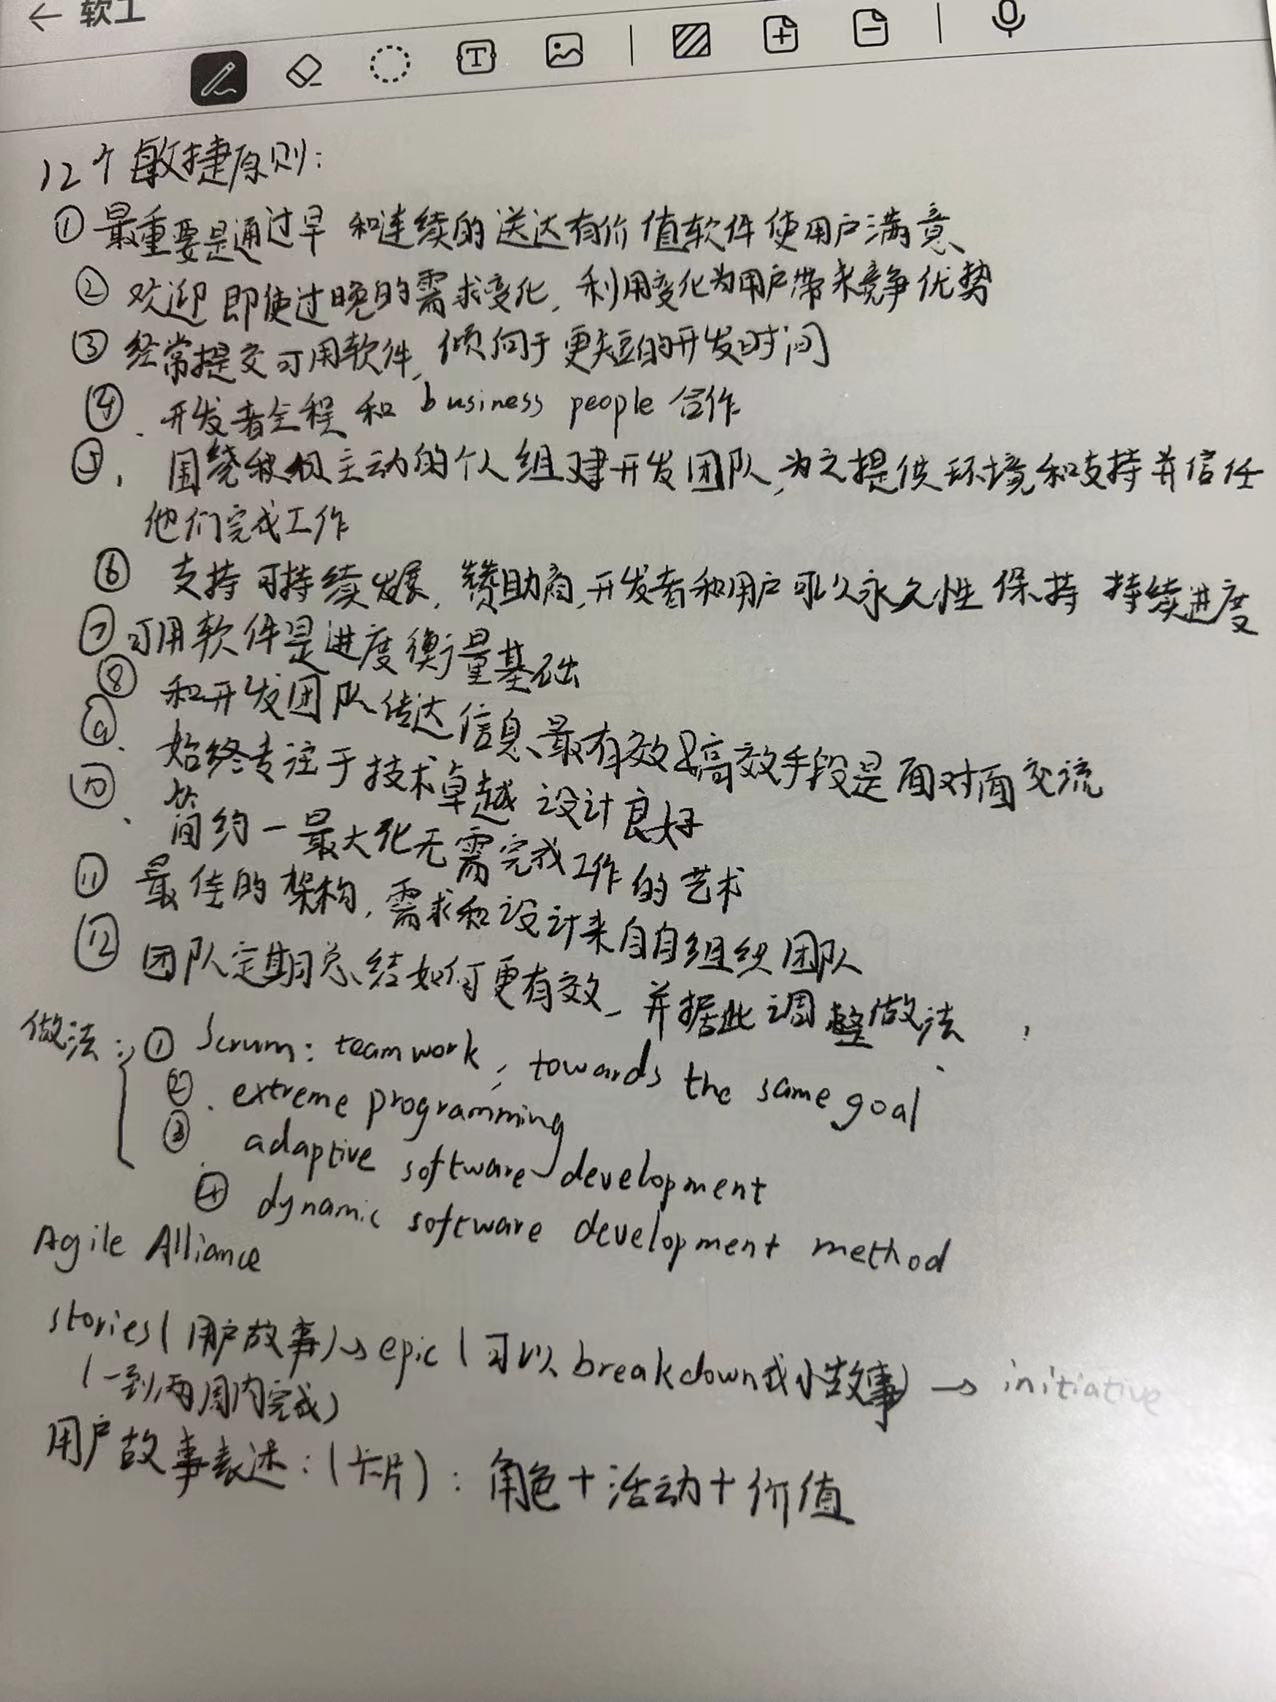 软工
12个敏捷原则:
① 最重要是通过早和连续的送达有价值软件使用户满意
② 欢迎即使过晚的需求变化, 利用变化为用户带来竞争优势
③ 经常提交可用软件, 倾向于更短的开发时间
④、开发者全程和 business people 合作
⑤, 围绕积极主动的个人组建开发团队, 为之提供环境和支持并信任
他们完成工作
⑥ 支持可持续发展, 赞助商, 开发者和用户可以永久性保持持续进度
⑦ 可用软件是进度衡量基础
⑧ 和开发团队传达信息最有效&高效手段是面对面交流
⑨、始终专注于技术卓越 设计良好
⑩、简约-最大化无需完成工作的艺术
⑪ 最佳的架构, 需求和设计来自自组织团队
⑫ 团队定期总结如何更有效, 并据此调整做法
做法: ① Scrum: teamwork, towards the same goal
②. extreme programming
③. adaptive software development
④ dynamic software development method
Agile Alliance
stories(用户故事)→epic(可以breakdown成小故事) → initiative
(一到两周内完成)
用户故事表述:(卡片): 角色+活动+价值